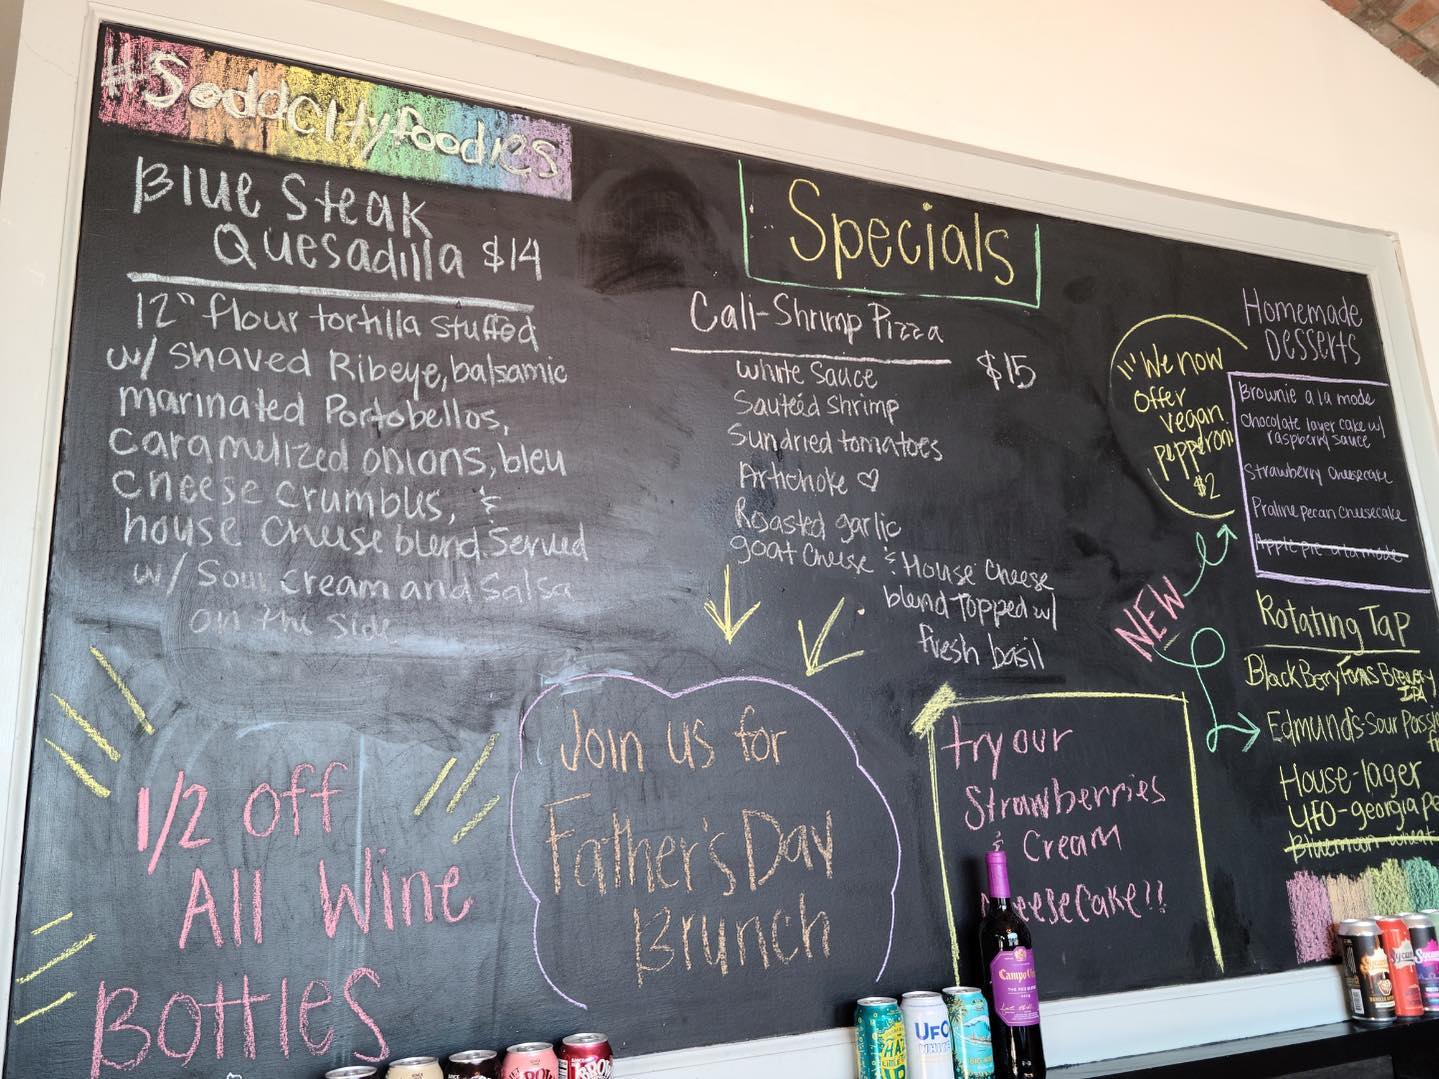 #Soddcityfoodies
Blue Steak
Quesadilla $14
12" flour tortilla stuffed
w/ shaved Ribeye, balsamic
marinated Portobellos,
caramelized onions, bleu
cheese crumbles, &
house cheese blend. Served
w/ Sour cream and Salsa
on the side
1/2 off
All Wine
Bottles
Specials
Cali-Shrimp Pizza
$15
white sauce
Sauteéd shrimp
sundried tomatoes
Artichoke ♡
Roasted garlic
goat cheese & House cheese
blend Topped w/
fresh basil
Join us for
Father's Day
Brunch
try our
Strawberries
& Cream
cheesecake!!
We now
offer
vegan
pepperoni
$2
NEW
Homemade
Desserts
Brownie a la mode
Chocolate layer cake w/
raspberry sauce
Strawberry Cheesecake
Praline pecan cheesecake
Apple pie a la mode
Rotating Tap
BlackBerry Farms Brewery
IPA
Edmund's-Sour Passi
House-lager
UFO-georgia Pe
Bluemoon wheat
Campo Viejo
UFO
WHITE